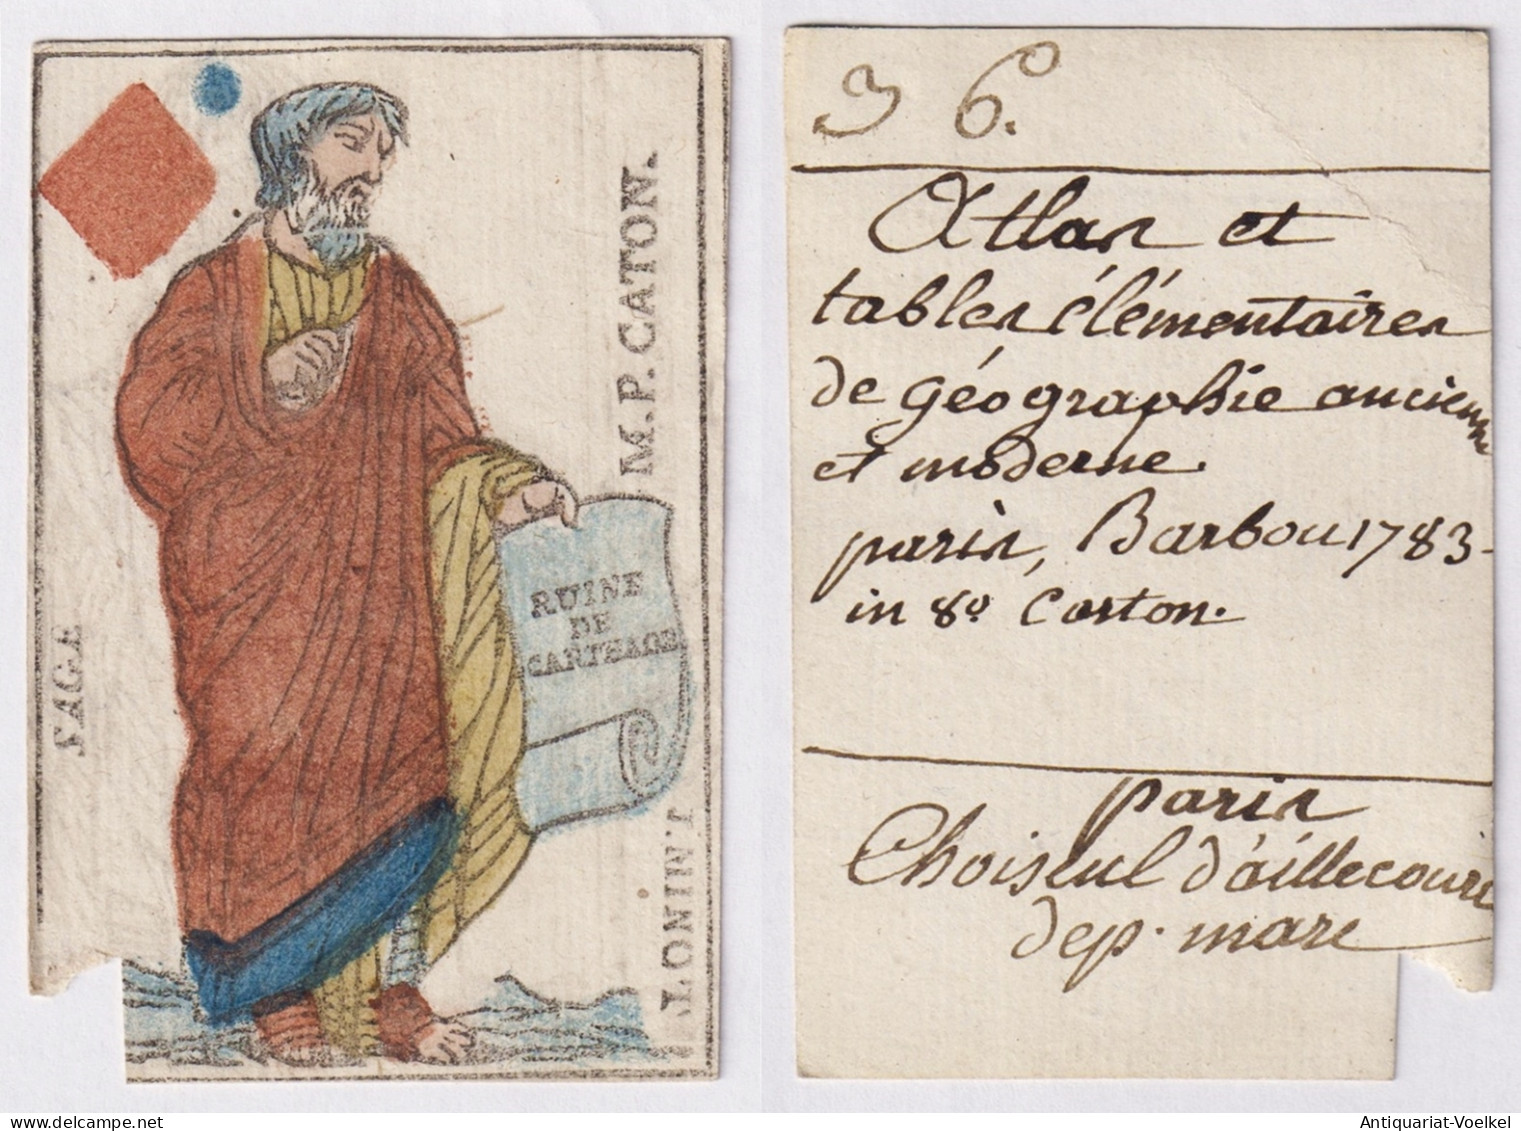 M. P. CATON.
SAGE
RUINE
DE
CARTHAGE
J. MINOT
3 6.
Atlas et
tables élémentaires
de géographie ancienne
et moderne.
paris, Barbou 1783-
in 8º Carton.
paris
Choiseul d'aillecourt
dep. marc
Antiquariat-Voelkel